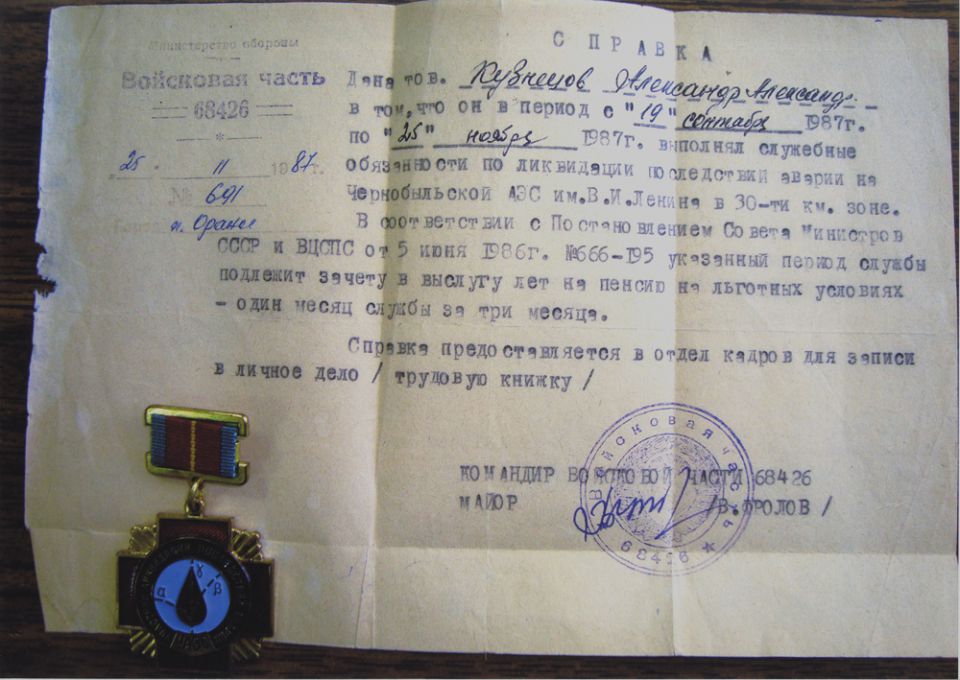 Министерство обороны
Войсковая часть
68426
*
25 11 1987г.
№ 691
п. Оране
СПРАВКА
Дана тов. Кузнецов Александр Александр.
в том, что он в период с "19" сентября 1987г.
по "25" ноября 1987г. выполнял служебные
обязанности по ликвидации последствий аварии на
Чернобыльской АЭС им.В.И.Ленина в 30-ти км. зоне.
В соответствии с Постановлением Совета Министров
СССР и ВЦСПС от 5 июня 1986г. №666-195 указанный период службы
подлежит зачету в выслугу лет на пенсию на льготных условиях
- один месяц службы за три месяца.
Справка предоставляется в отдел кадров для записи
в личное дело / трудовую книжку /
КОМАНДИР ВОЙСКОВОЙ ЧАСТИ 68426
МАЙОР /В.ФРОЛОВ /
Войсковая часть
68426 *
α γ β